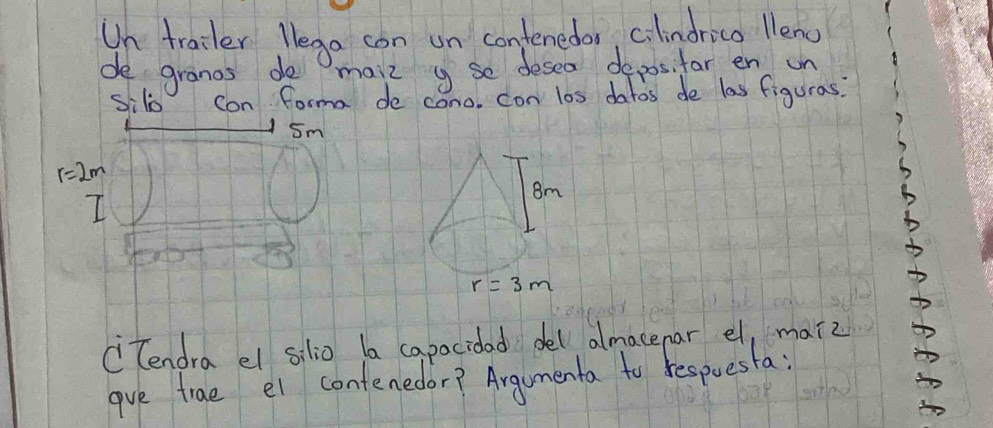 Un trailer llega con un contenedor cilindrico lleno
de granos de maiz y se desea depositar en un
silio con forma de cono. Con los datos de las figuras:
5m
r=2m
8m
r = 3m
¿Tendra el silio la capacidad del almacenar el maiz
que trae el contenedor? Argumenta tu respuesta: